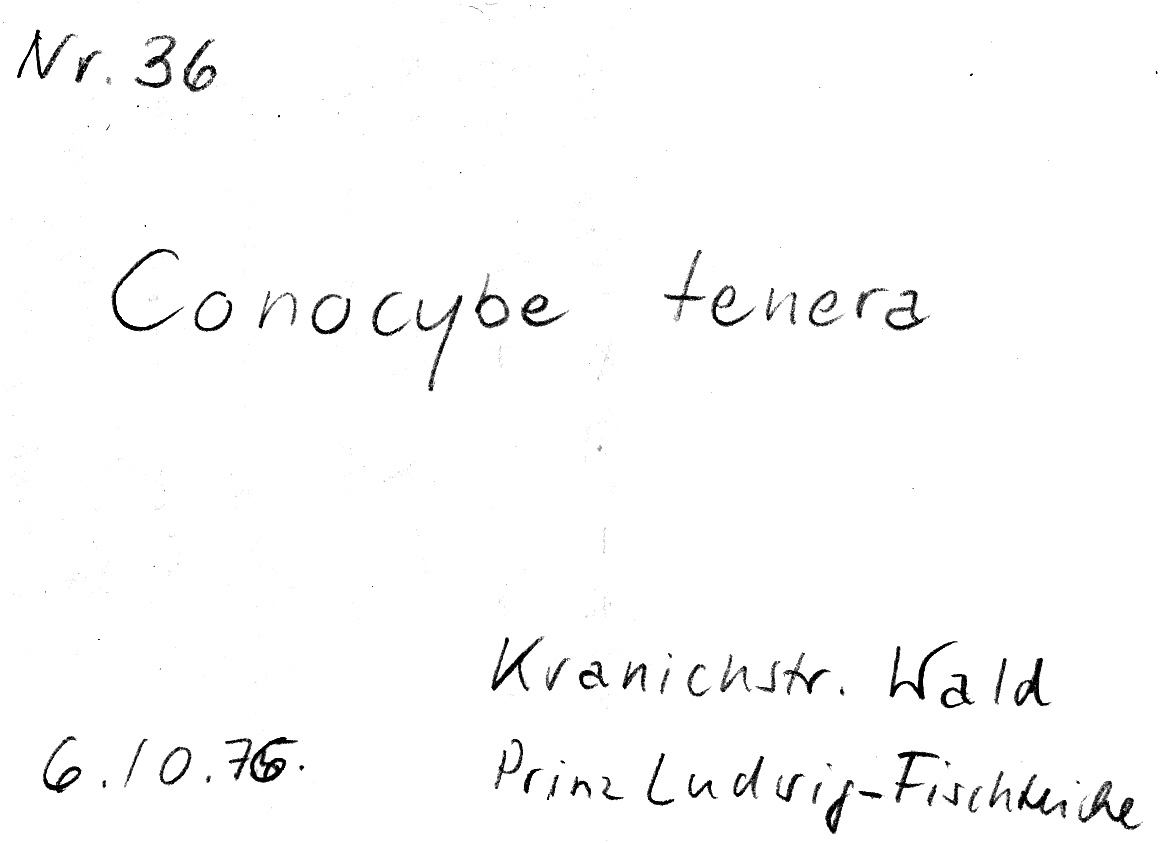 Nr. 36
Conocybe tenera
Kranichstr. Wald
6.10.76. Prinz Ludwig-Fischteiche